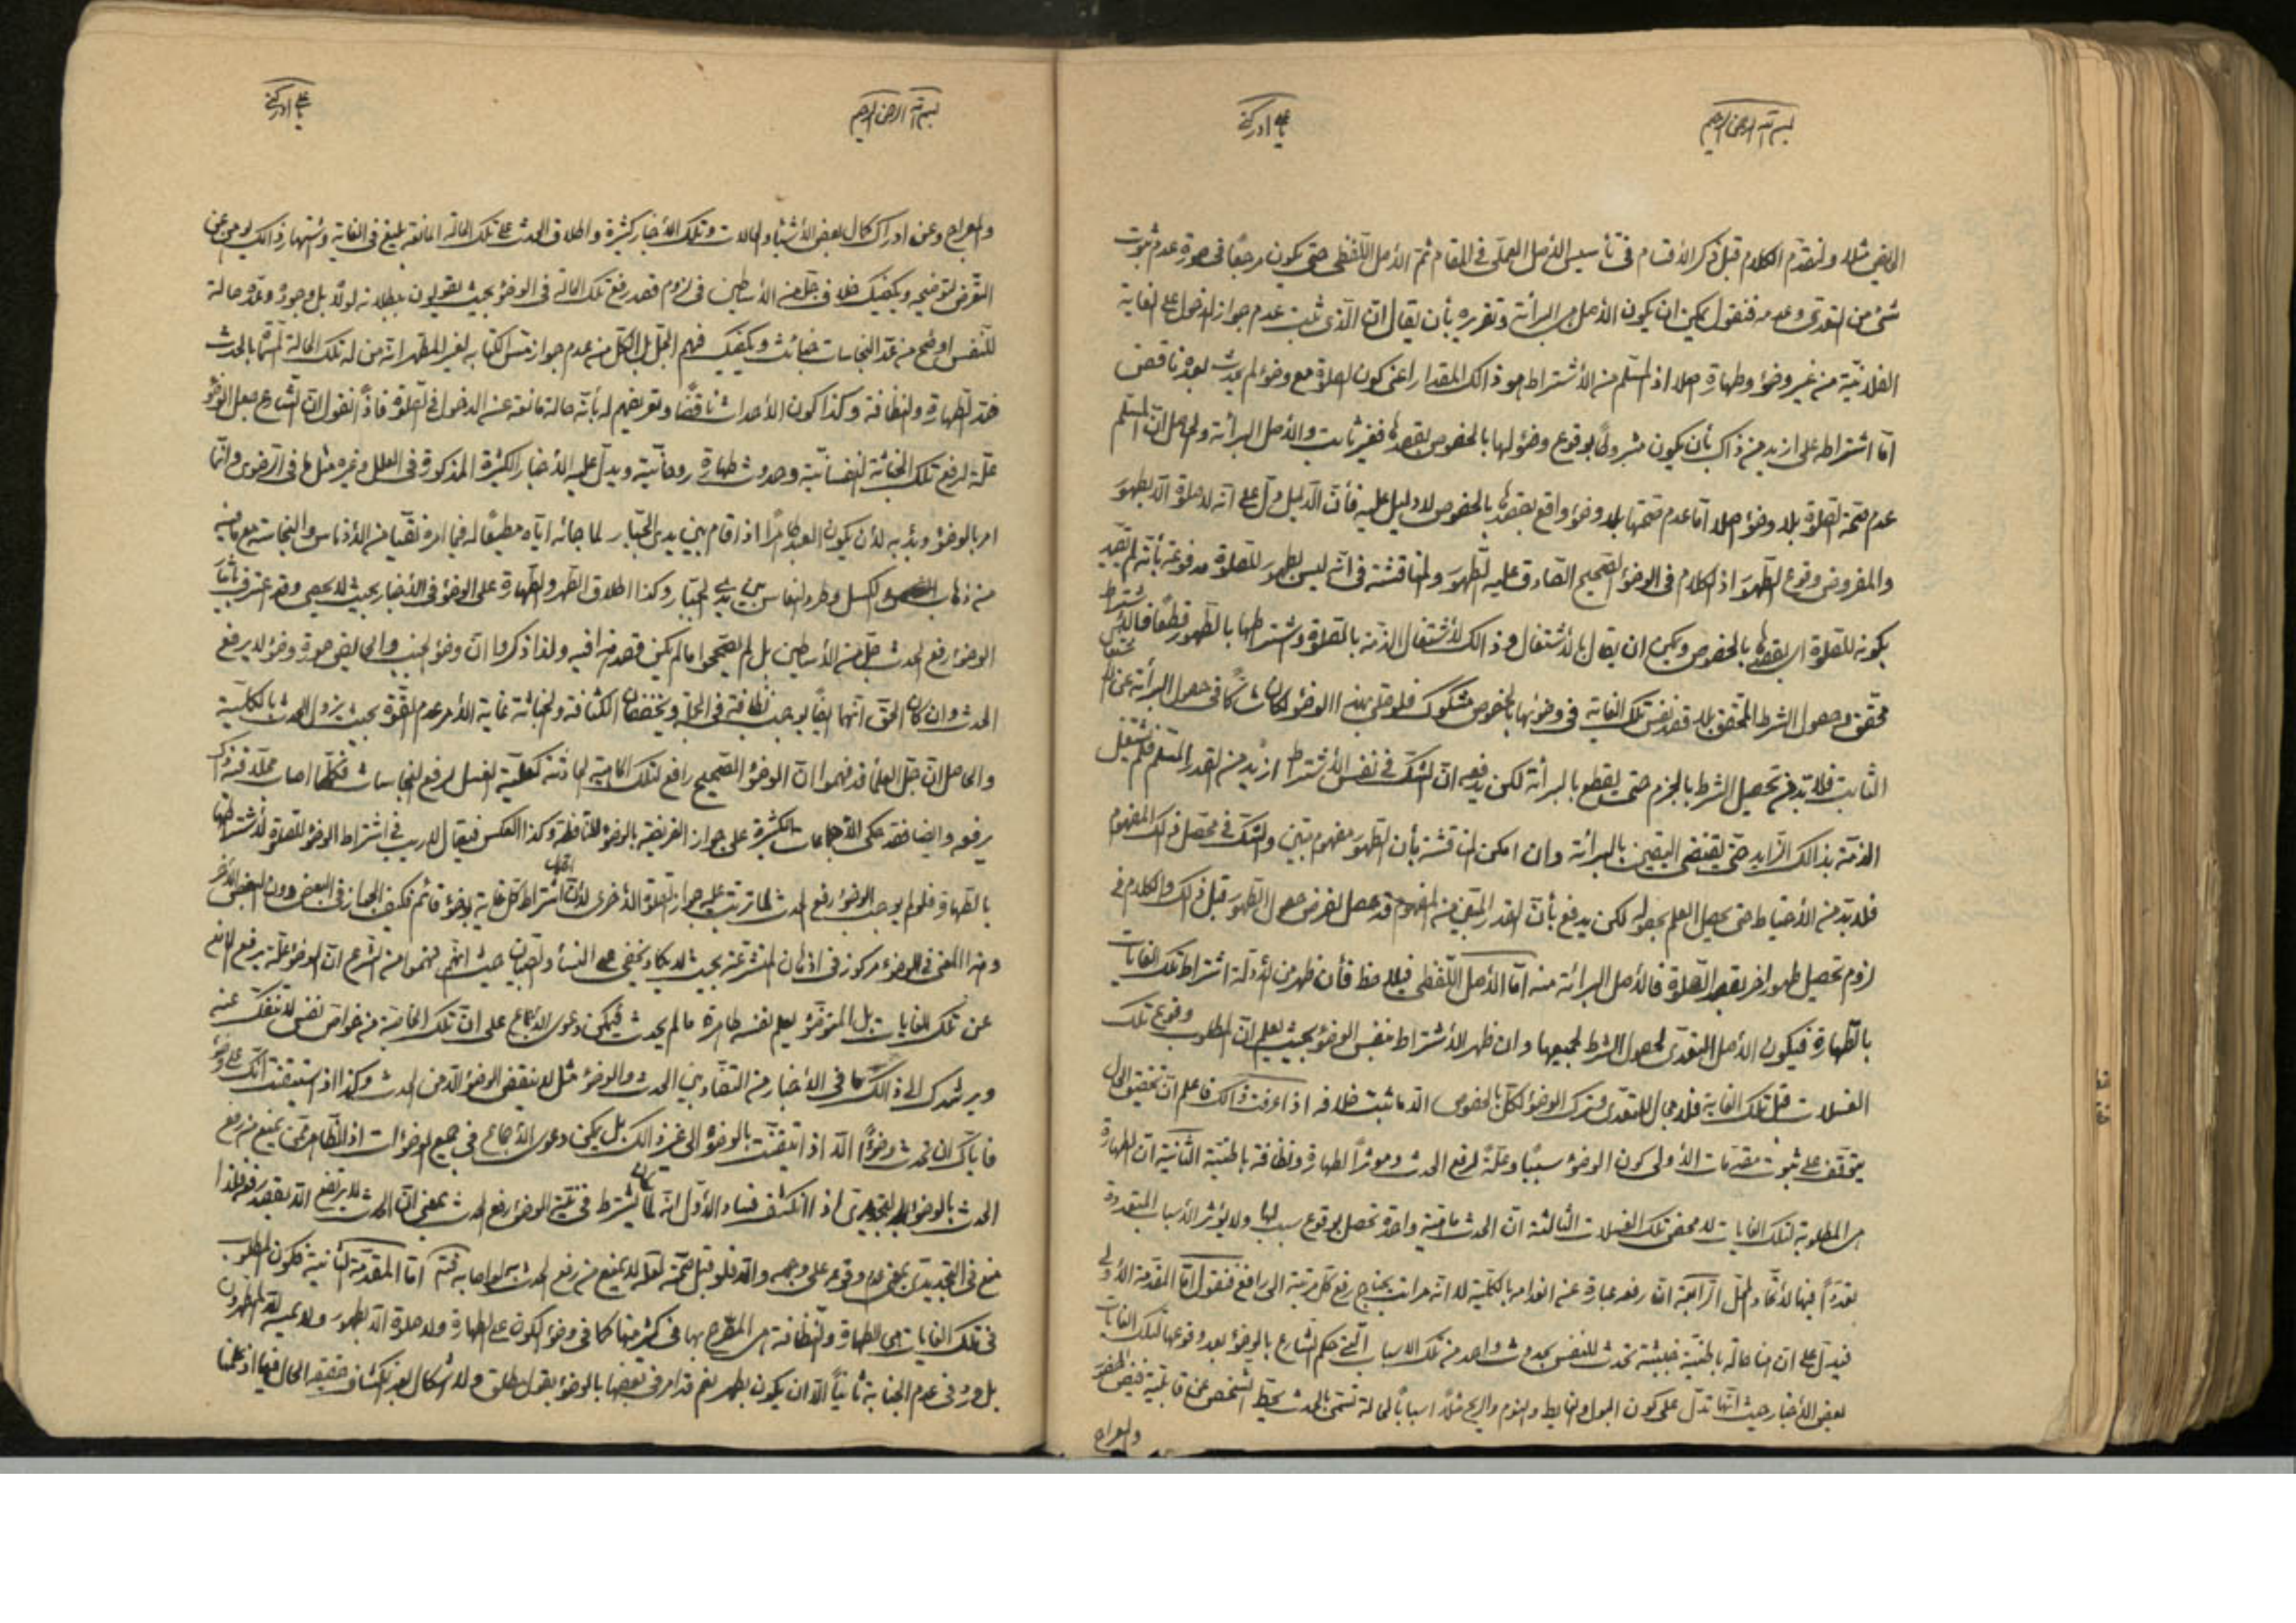 بسم الله الرحمن الرحيم
يا علي ادركني
الحايض مثلا ولنقدم الكلام قبل ذكر الأقسام في تأسيس الأصل العملي في المقام ثم الأصل اللفظي حتى يكون مرجعا في صورة عدم ثبوت
شئ من التعدي وعدمه فنقول يمكن ان يكون الأصل هي البرائة وتقريره بأن يقال ان الذي ثبت عدم جواز الدخول على الغاية
الفلانية من غير وضوء وطهارة اصلا اذ المسلم من الأشتراط هو ذالك المقدار اعني كون الصلوة مع وضوء لم يحدث بعده ناقض
اما اشتراطه على ازيد من ذالك بأن يكون مشروطا بوقوع وضوء لها بالخصوص بقصدها فغير ثابت والأصل البرائة والحاصل ان المسلم
عدم صحة الصلوة بلا وضوء اصلا اما عدم صحتها بلا وضوء واقع بقصدها بالخصوص لا دليل عليه فأن الدليل دل على انه لا صلوة الا بطهور
والمفروض وقوع الطهور اذ الكلام في الوضوء الصحيح الصادق عليه الطهور والمناقشة في انه ليس بطهور للصلوة مدفوعة بأنه لم يقيد
بكونه للصلوة اي بقصدها بالخصوص ويمكن ان يقال بالأشتغال وذالك لأشتغال الذمة بالصلوة واشتراطها بالطهور قطعا فالأشتراط
محقق وحصول الشرط المحقق بلا قصد نفس تلك الغاية في وضوئها بالخصوص مشكوك فلو صلى بهذا الوضوء لكان شاكا في حصول البرائة عن
الثابت فلا بد من تحصيل الشرط بالجزم حتى يقطع بالبرأئة لكن يدفعه ان الشك في نفس الأشتراط ازيد من القدر المسلم فلم يشتغل
الذمة بذالك الزايد حتى يقتضي اليقين بالبرائة وان امكن المناقشة بأن الطهور مفهوم مبين والشك في محصل ذلك المفهوم
فلا بد من الأحتياط حتى يحصل العلم بحصوله لكن يدفع بأن القدر المتيقن من المفهوم قد حصل لفرض حصول الطهور قبل ذلك والكلام في
لزوم تحصيل طهور اخر بقصد الصلوة فالأصل البرائة منه اما الأصل اللفظي فيلاحظ فأن ظهر من الأدلة اشتراط تلك الغايات
بالطهارة فيكون الأصل التعدي لحصول الشرط لجميعها وان ظهر الأشتراط بنفس الوضوء بحيث يعلم ان المطلوب وقوع تلك
الغسلات قبل تلك الغاية فلا مجال للتعدي فيترك الوضوء لكل بالخصوص الا ما ثبت خلافه اذا عرفت ذالك فاعلم ان تحقيق الحال
يتوقف على ثبوت مقدمات الأولى كون الوضوء سببا وعلة لرفع الحدث وموثرا لطهارة ونظافة باطنية الثانية ان الطهارة
هي المطلوبة لتلك الغايات لا محض تلك الغسلات الثالثة ان الحدث ماهية واحدة تحصل بوقوع سبب لها ولا يؤثر الأسباب المتعددة
تعددا فيها لأتحاد المحل الرابعة ان رفعه عبارة عن انعدامه بالكلية لا انه مراتب يحتاج رفع كل مرتبة الى رافع فنقول اما المقدمة الأولى
فيدل على ان هنا حالة باطنية خبيثة تحدث للنفس بحدوث واحد من تلك الاسباب التي حكم الشارع بالوضوء بعد وقوعها لتلك الغايات
بعض الأخبار حيث انها تدل على كون البول والغايط والنوم والريح مثلا اسبابا لحالة تسمى بالحدث يحط الشخص عن قابلية فيض الحضور
والمعراج

بسم الله الرحمن الرحيم
يا علي ادركني
والمعراج وعن ادراك كمال بعض الأشياء والحالات وتلك الأخبار كثيرة واطلاق الحدث على تلك الحالة المانعة بليغ في الغاية واشتهار ذالك يغني عن
التعرض لتوضيحه ويكفيك خلاف جل من الأساطين في لزوم قصد رفع تلك الحالة في الوضوء بحيث يقولون ببطلانه لولا بل وجود وعدم حالة
للنفس اوضح من عد النجاسات خبائث ويكفيك فهم الجل بل الكل من عدم جواز مس الكتابة لغير المطهر انه من له تلك الحالة المسماة بالحدث
ضد الطهارة والنظافة وكذا كون الأحداث ناقضا وتعريفهم له بأنه حالة مانعة عن الدخول في الصلوة فاذا نقول ان الشارع جعل الوضوء
علة لرفع تلك الخبائة النفسانية وحدوث طهارة روحانية ويدل عليه الأخبار الكثيرة المذكورة في العلل وغيره مثل ما في الرضوي وانما
امر بالوضوء وبدء به لأن يكون العبد طاهرا اذا قام بين يدي الجبار لما جائه اياه مطيعا له فيما امره نقيا من الأدناس والنجاسة مع ما فيه
من ذهاب الكسل وطرد النعاس بين يدي الجبار وكذا اطلاق الطهر والطهارة على الوضوء في الأخبار بحيث لا يحصى وقد اعترف بتأثير
الوضوء رفع الحدث جل من الأساطين بل لم يصححوا ما لم يكن قصد فيه ولذا ذكروا ان وضوء الجنب والحايض صورة وضوء لا يرفع
الحدث وان كان الحق انهما ايضا يوجب نظافة في الجملة ويخففان الكثافة والخباثة غاية الأمر عدم القوة بحيث يزول الحدث بالكلية
والحاصل ان جل العلماء قد فهموا ان الوضوء الصحيح رافع لتلك الماهية الحادثة كعلية الغسل لرفع النجاسات فكلما اصاب محلا قذرا
يرفعه وايضا فقد حكى الأجماعات الكثيرة على جواز الفريضة بالوضوء للنافلة وكذا العكس فيقال لا ريب في اشتراط الوضوء للصلوة لأشتراطها
بالطهارة فلو لم يوجب الوضوء رفع الحدث لما ترتب عليه جواز الصلوة الأخرى لأن اشتراط كل غاية بوضوء قائم فكيف الجواز في البعض دون البعض الأخر
وهذا المعنى في الوضوء مركوز في اذهان المتشرعة بحيث لا يكاد يخفى على النساء والصبيان حيث انهم فهموا من الشرع ان الوضوء علة يرفع المانع
عن تلك الغايات بل المتوضؤ يعلم نفسه طاهرة ما لم يحدث فيمكن دعوى الأجماع على ان تلك الخاصية من خواص نفس لا تنفك عنه
ويرشدك الى ذالك ما في الأخبار من التضاد بين الحدث والوضوء مثل لا ينقض الوضوء الا من الحدث وكذا اذا استيقنت انك على وضوء
فاياك ان تحدث وضوءا الا اذا تيقنت بالوضوء الى غير ذالك بل يمكن دعوى الأجماع في جميع الوضوءات اذ الظاهر ممن يمنع من رفع
الحدث بالوضوء التجديدي اذا انكشف فساد الأول انه لما يشترط في نية الوضوء رفع الحدث بمعنى ان الحدث لا يرتفع الا بقصد رفعه فلذا
منع في التجديدي بمعنى عدم وقوعه على وجهه والا فلو قيل صحة لعله لا يمنع من رفع الحدث به لو اصابه فتم اما المقدمة الثانية فكون المطلوب
في تلك الغايات هي الطهارة والنظافة هي المصرح بها في كثير منها كما في وضوء الكون على الطهارة ولا صلوة الا بطهور ولا يمسه الا المطهرون
بل ورد في عدم الجنابة ثانيا الا ان يكون بطهر نعم قد امر في بعضها بالوضوء بقول مطلق ولا اشكال بعد انكشاف حقيقة الحال فيها اذ علمنا